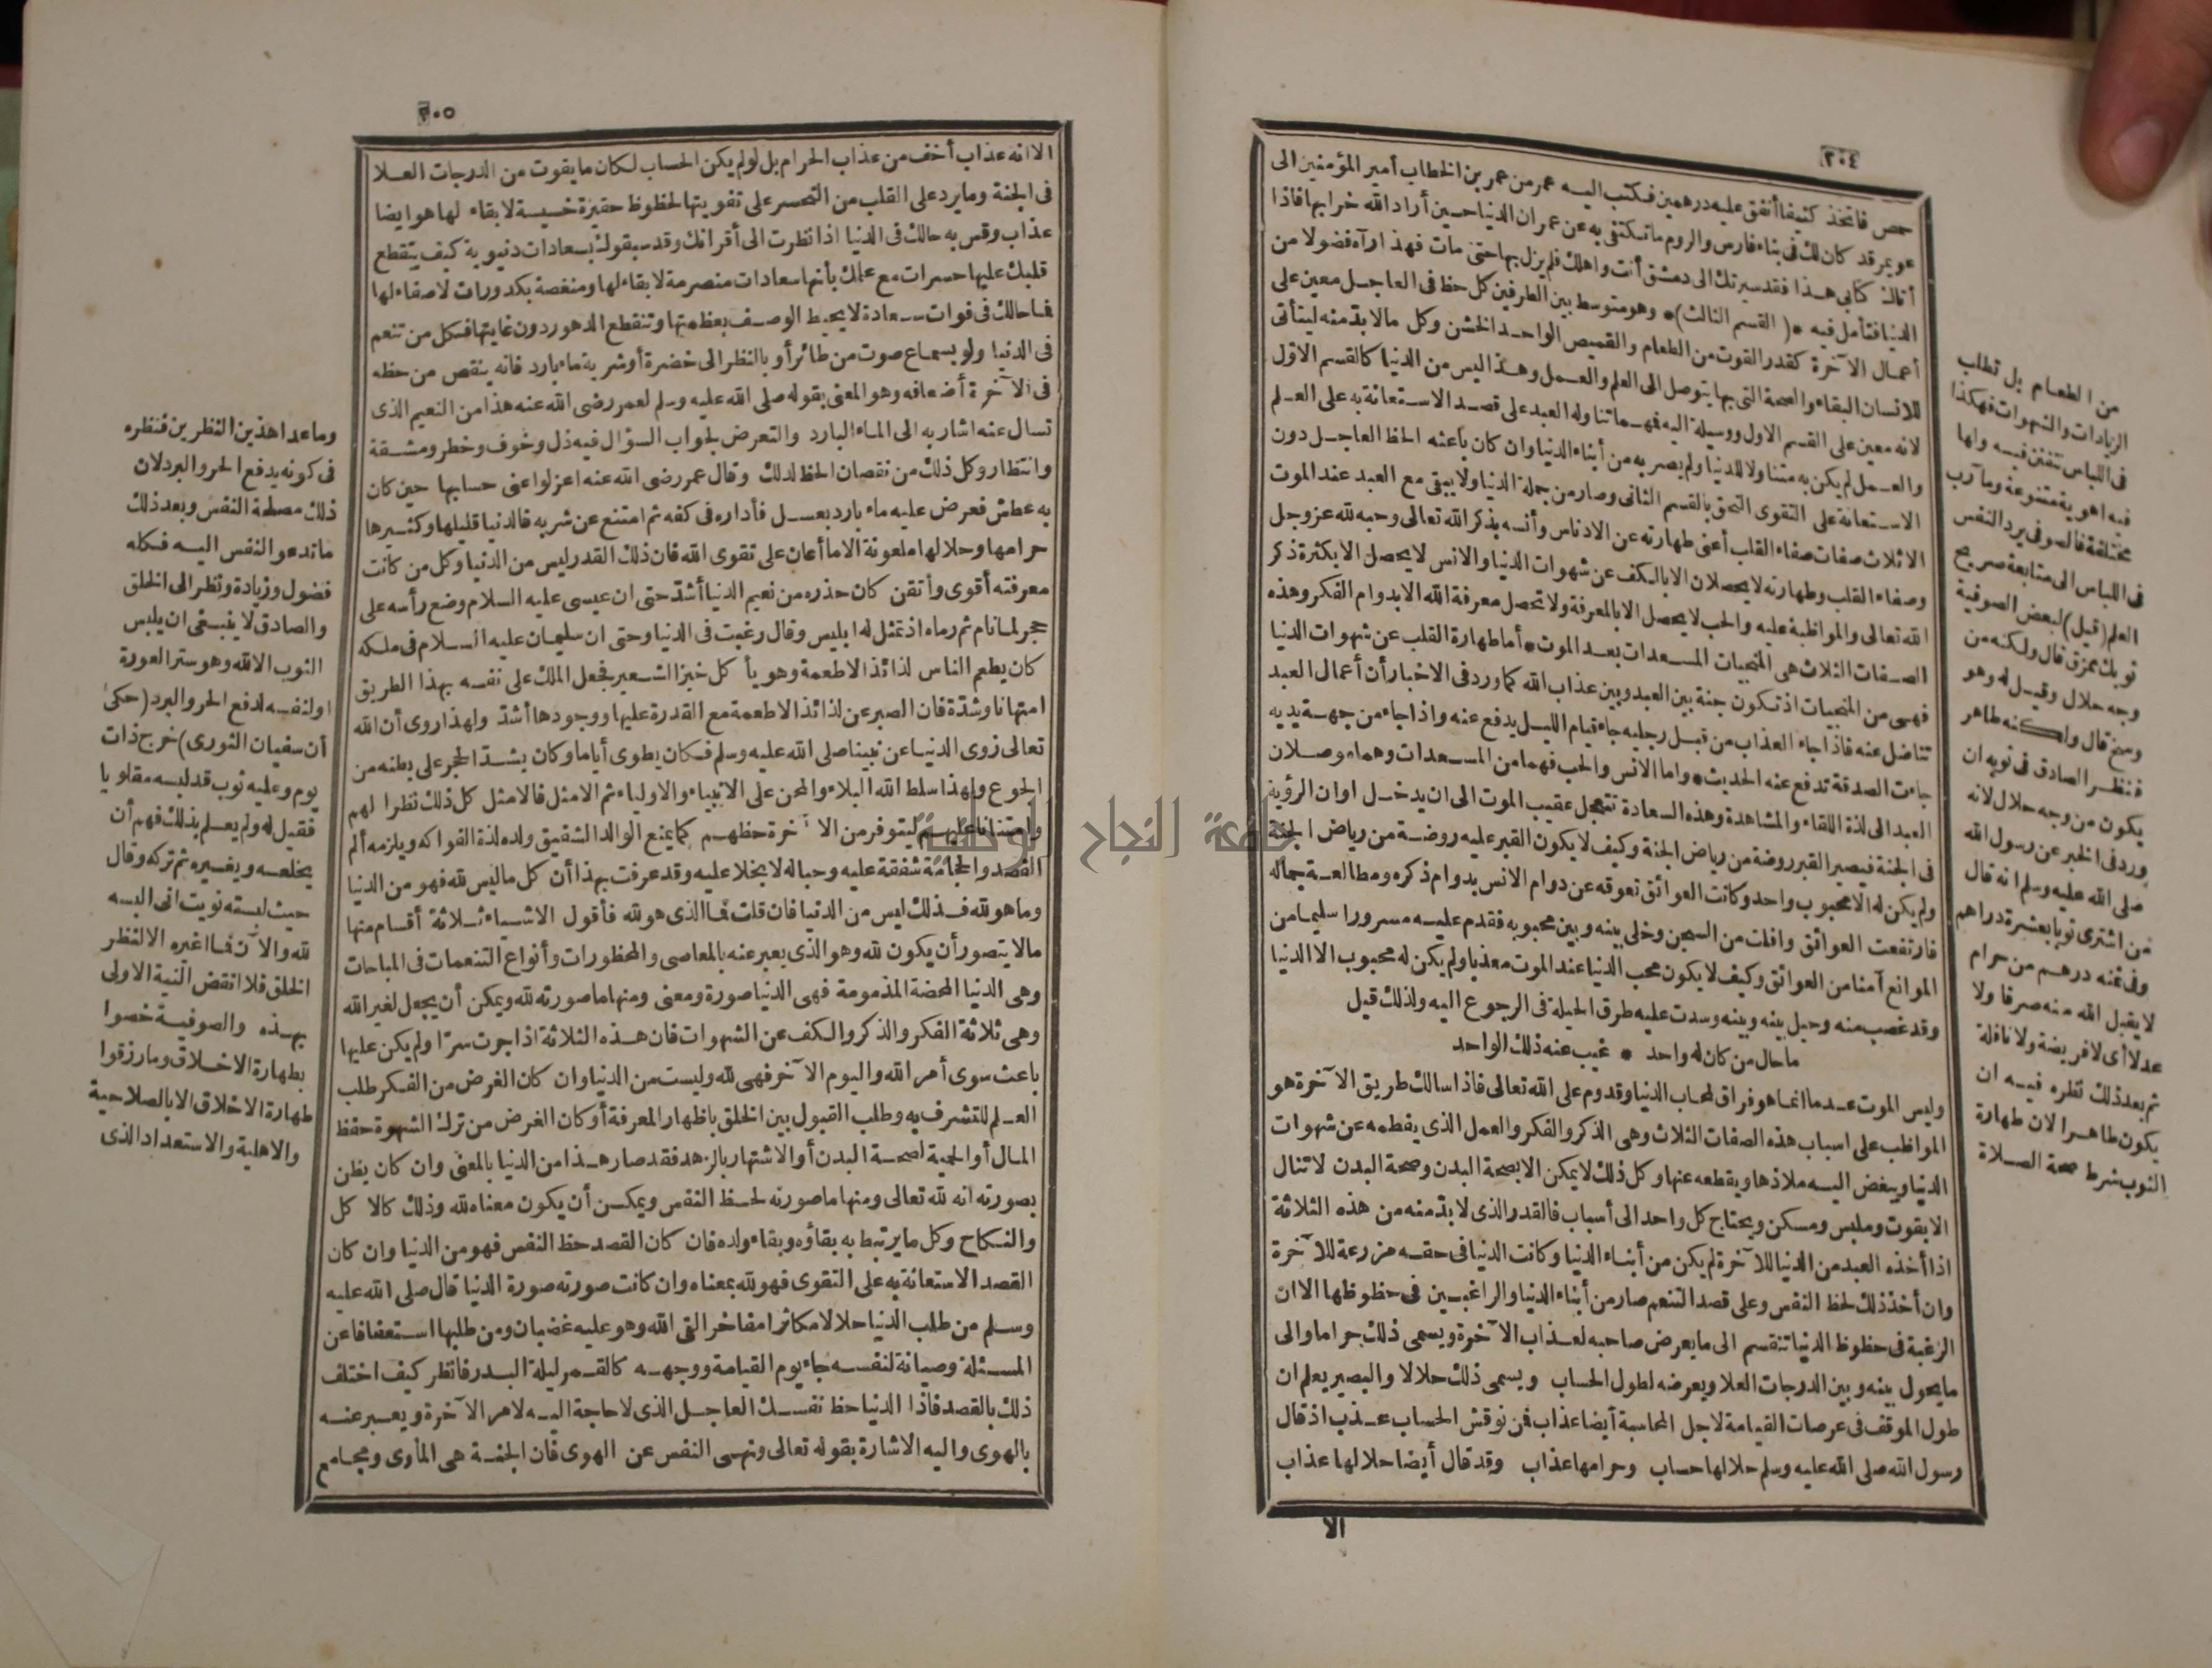 ٢٠٤
حمص فاتخذ كنيفا أنفق عليه درهمين فكتب اليه عمر من عمر بن الخطاب أمير المؤمنين الى
عويمر قد كان لك فى بناء فارس والروم ما تكتفى به عن عمران الدنيا حين أراد الله خرابها فاذا
أتاك كتابى هذا فقد سيرتك الى دمشق أنت واهلك فلم يزل بها حتى مات فهذا ارآه فضولا من
الدنيا فتأمل فيه *( القسم الثالث)* وهو متوسط بين الطرفين كل حظ فى العاجل معين على
أعمال الآخرة كقدر القوت من الطعام والقميص الواحد الخشن وكل مالا بد منه ليتأتى
للانسان البقاء والصحة التى بها يتوصل الى العلم والعمل وهذا ليس من الدنيا كالقسم الاول
لانه معين على القسم الاول ووسيلة اليه فهما تناوله العبد على قصد الاستعانة به على العلم
والعمل لم يكن به متناولا للدنيا ولم يصر به من أبناء الدنيا وان كان باعثه الحظ العاجل دون
الاستعانة على التقوى التحق بالقسم الثانى وصار من جملة الدنيا ولا يبقى مع العبد عند الموت
الا ثلاث صفات صفاء القلب أعنى طهارته عن الادناس وأنسه بذكر الله تعالى وحبه لله عز وجل
وصفاء القلب وطهارته لا يحصلان الا بالكف عن شهوات الدنيا والانس لا يحصل الا بكثرة ذكر
الله تعالى والمواظبة عليه والحب لا يحصل الا بالمعرفة ولا تحصل معرفة الله الا بدوام الفكر وهذه
الصفات الثلاث هى المنجيات المسعدات بعد الموت* أما طهارة القلب عن شهوات الدنيا
فهى من المنجيات اذ تكون جنة بين العبد وبين عذاب الله كما ورد فى الاخبار أن أعمال العبد
تناضل عنه فاذا جاء العذاب من قبل رجليه جاء قيام الليل يدفع عنه واذا جاء من جهة يديه
جاءت الصدقة تدفع عنه الحديث* واما الانس والحب فهما من المسعدات وهما موصلان
العبد الى لذة اللقاء والمشاهدة وهذه السعادة تتعجل عقيب الموت الى ان يدخل اوان الرؤية
فى الجنة فيصير القبر روضة من رياض الجنة وكيف لا يكون القبر عليه روضة من رياض الجنة
ولم يكن له الا محبوب واحد وكانت العوائق تعوقه عن دوام الانس بدوام ذكره ومطالعة جماله
فارتفعت العوائق وافلت من السجن وخلى بينه وبين محبوبه فقدم عليه مسرورا سليما من
الموانع آمنا من العوائق وكيف لا يكون محب الدنيا عند الموت معذبا ولم يكن له محبوب الا الدنيا
وقد غصب منه وحيل بينه وبينه وسدت عليه طرق الحيلة فى الرجوع اليه ولذلك قيل
ما حال من كان له واحد * غيب عنه ذلك الواحد
وليس الموت عدما انما هو فراق لمحاب الدنيا وقدوم على الله تعالى فاذا سالك طريق الآخرة هو
المواظب على اسباب هذه الصفات الثلاث وهى الذكر والفكر والعمل الذى يقطمه عن شهوات
الدنيا ويبغض اليه ملاذها ويقطعه عنها وكل ذلك لا يمكن الا بصحة البدن وصحة البدن لا تنال
الا بقوت وملبس ومسكن ويحتاج كل واحد الى أسباب فالقدر الذى لا بد منه من هذه الثلاثة
اذا أخذه العبد من الدنيا للآخرة لم يكن من أبناء الدنيا وكانت الدنيا فى حقه مزرعة للآخرة
وان أخذ ذلك لحظ النفس وعلى قصد التنعم صار من أبناء الدنيا والراغبين فى حظوظها الا ان
الرغبة فى حظوظ الدنيا تنقسم الى ما يعرض صاحبه لعذاب الآخرة ويسمى ذلك حراما والى
ما يحول بينه وبين الدرجات العلا ويعرضه لطول الحساب ويسمى ذلك حلالا والبصير يعلم ان
طول الموقف فى عرصات القيامة لاجل المحاسبة أيضا عذاب فمن نوقش الحساب عذب اذ قال
رسول الله صلى الله عليه وسلم حلالها حساب وحرامها عذاب وقد قال أيضا حلالها عذاب
الا
من الطعام بل تطلب
الزيادات والشهوات فهكذا
فى اللباس تتفنن فيه ولها
فيه اهوية متنوعة ومآرب
مختلفة فالصوفى يرد النفس
فى اللباس الى متابعة صريح
العلم (قيل) لبعض الصوفية
ثوبك ممزق قال ولكنه من
وجه حلال وقيل له وهو
وسخ قال ولكنه طاهر
فنظر الصادق فى ثوبه ان
يكون من وجه حلال لانه
ورد فى الخبر عن رسول الله
صلى الله عليه وسلم انه قال
من اشترى ثوبا بعشرة دراهم
وفى ثمنه درهم من حرام
لا يقبل الله منه صرفا ولا
عدلا أى لا فريضة ولا نافلة
ثم بعد ذلك نظره فيه ان
يكون طاهرا لان طهارة
الثوب شرط صحة الصلاة
٢٠٥
الا انه عذاب أخف من عذاب الحرام بل لو لم يكن الحساب لكان ما يفوت من الدرجات العلا
فى الجنة وما يرد على القلب من التحسر على تفويتها لحظوظ حقيرة خسيسة لا بقاء لها هو ايضا
عذاب وقس به حالك فى الدنيا اذا نظرت الى أقرانك وقد سبقوك بسعادات دنيوية كيف يتقطع
قلبك عليها حسرات مع علمك بأنها سعادات منصرمة لا بقاء لها ومنغصة بكدورات لا صفاء لها
فما حالك فى فوات سعادة لا يحيط الوصف بعظمتها وتنقطع الدهور دون غايتها فكل من تنعم
فى الدنيا ولو بسماع صوت من طائر أو بالنظر الى خضرة أو شربة ماء بارد فانه ينقص من حظه
فى الآخرة أضعافه وهو المعنى بقوله صلى الله عليه وسلم لعمر رضى الله عنه هذا من النعيم الذى
تسال عنه اشار به الى الماء البارد والتعرض لجواب السؤال فيه ذل وخوف وخطر ومشقة
وانتظار وكل ذلك من نقصان الحظ لذلك وقال عمر رضى الله عنه اعزلوا عنى حسابها حين كان
به عطش فعرض عليه ماء بارد بعسل فأداره فى كفه ثم امتنع عن شربه فالدنيا قليلها وكثيرها
حرامها وحلالها ملعونة الا ما أعان على تقوى الله فان ذلك القدر ليس من الدنيا وكل من كانت
معرفته أقوى وأتقن كان حذره من نعيم الدنيا أشد حتى ان عيسى عليه السلام وضع رأسه على
حجر لما نام ثم رماه اذ تمثل له ابليس وقال رغبت فى الدنيا وحتى ان سليمان عليه السلام فى ملكه
كان يطعم الناس لذائذ الاطعمة وهو يأكل خبز الشعير فجعل الملك على نفسه بهذا الطريق
امتهانا وشدة فان الصبر عن لذائذ الاطعمة مع القدرة عليها ووجودها أشد ولهذا روى أن الله
تعالى زوى الدنيا عن نبينا صلى الله عليه وسلم فكان يطوى أياما وكان يشد الحجر على بطنه من
الجوع ولهذا سلط الله البلاء والمحن على الانبياء والاولياء ثم الامثل فالامثل كل ذلك نظرا لهم
وامتنانا عليهم ليتوفر من الآخرة حظهم كما يمنع الوالد الشفيق ولده لذة الفواكه ويلزمه ألم
الفصد والحجامة شفقة عليه وحبا له لا بخلا عليه وقد عرفت بهذا أن كل ما ليس لله فهو من الدنيا
وما هو لله فذلك ليس من الدنيا فان قلت فما الذى هو لله فأقول الاشياء ثلاثة أقسام منها
مالا يتصور أن يكون لله وهو الذى يعبر عنه بالمعاصى والمحظورات وأنواع التنعمات فى المباحات
وهى الدنيا المحضة المذمومة فهى الدنيا صورة ومعنى ومنها ما صورته لله ويمكن أن يجعل لغير الله
وهى ثلاثة الفكر والذكر والكف عن الشهوات فان هذه الثلاثة اذا جرت سرا ولم يكن عليها
باعث سوى أمر الله واليوم الآخر فهى لله وليست من الدنيا وان كان الغرض من الفكر طلب
العلم للتشرف به وطلب القبول بين الخلق باظهار المعرفة أو كان الغرض من ترك الشهوة حفظ
المال أو الحمية لصحة البدن أو الاشتهار بالزهد فقد صار هذا من الدنيا بالمعنى وان كان يظن
بصورته انه لله تعالى ومنها ما صورته لحظ النفس ويمكن أن يكون معناه لله وذلك كالاكل
والنكاح وكل ما يرتبط به بقاؤه وبقاء ولده فان كان القصد حظ النفس فهو من الدنيا وان كان
القصد الاستعانة به على التقوى فهو لله بمعناه وان كانت صورته صورة الدنيا قال صلى الله عليه
وسلم من طلب الدنيا حلالا مكاثرا مفاخرا لقى الله وهو عليه غضبان ومن طلبها استعفافا عن
المسئلة وصيانة لنفسه جاء يوم القيامة ووجهه كالقمر ليلة البدر فانظر كيف اختلف
ذلك بالقصد فاذا الدنيا حظ نفسك العاجل الذى لا حاجة اليه لامر الآخرة ويعبر عنه
بالهوى واليه الاشارة بقوله تعالى ونهى النفس عن الهوى فان الجنة هى المأوى ومجامع
وما عدا هذين النظرين فنظره
فى كونه يدفع الحر والبرد لان
ذلك مصلحة النفس وبعد ذلك
ما تدعو النفس اليه فكله
فضول وزيادة ونظر الى الخلق
والصادق لا ينبغى ان يلبس
الثوب الا لله وهو ستر العورة
او لنفسه لدفع الحر والبرد (حكى
أن سفيان الثورى) خرج ذات
يوم وعليه ثوب قد لبسه مقلوبا
فقيل له ولم يعلم بذلك فهم أن
يخلعه ويغيره ثم تركه وقال
حيث لبسته نويت انى البسه
لله والآن فما اغيره الا لنظر
الخلق فلا انقض النية الاولى
بهذه والصوفية خصوا
بطهارة الاخلاق وما رزقوا
طهارة الاخلاق الا بالصلاحية
والاهلية والاستعداد الذى
جامعة النجاح الوطنية